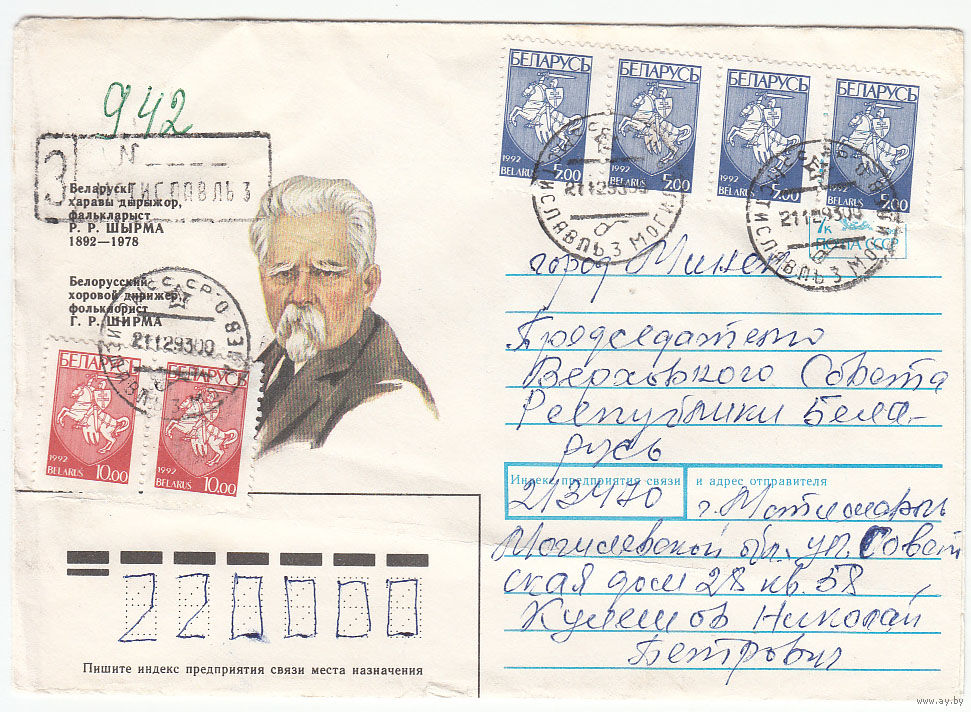 942
З N
МСТИСЛАВЛЬ 3
Беларускі
харавы дырыжор,
фалькларыст
Р. Р. ШЫРМА
1892—1978
Белорусский
хоровой дирижер,
фольклорист
Г. Р. ШИРМА
21129300
БЕЛАРУСЬ
1992
BELARUS
10.00
БЕЛАРУСЬ
1992
BELARUS
10.00
БЕЛАРУСЬ
1992
BELARUS
5.00
БЕЛАРУСЬ
1992
BELARUS
5.00
БЕЛАРУСЬ
1992
BELARUS
5.00
БЕЛАРУСЬ
1992
BELARUS
5.00
21129300
МСТИСЛАВЛЬ 3 МОГИЛ
21129300
МСТИСЛАВЛЬ 3 МОГИЛ
7к
ПОЧТА СССР
город Минск
Председателю
Верховного Совета
Республики Бела-
русь
Индекс предприятия связи
и адрес отправителя
213470
г. Мстиславль
Могилевской обл. ул. Совет
ская дом 28 кв. 58
Кулешов Николай
Петрович
220000
Пишите индекс предприятия связи места назначения
www.ay.by